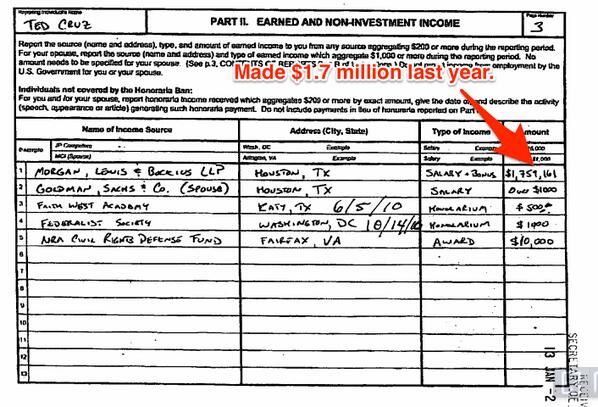 Reporting Individual's Name
TED CRUZ
PART II. EARNED AND NON-INVESTMENT INCOME
Page Number
3
Report the source (name and address), type, and amount of earned income to you from any source aggregating $200 or more during the reporting period.
For your spouse, report the source (name and address) and type of earned income which aggregate $1,000 or more during the reporting period. No
amount needs to be specified for your spouse. (See p.3, income from employment by the
U.S. Government for you or your spouse.
Made $1.7 million last year.
Individuals not covered by the Honoraria Ban:
For you and/or your spouse, report honoraria income received which aggregates $200 or more by exact amount, give the date of, and describe the activity
(speech, appearance or article) generating such honoraria payment. Do not include payments in lieu of honoraria reported on Part
Name of Income Source Address (City, State) Type of Income Amount
Example JP Computers Wash, DC Example Salary Example
MCI (Spouse) Arlington, VA Example Salary Example
1 MORGAN, LEWIS & BOCKIUS LLP HOUSTON, TX SALARY + BONUS $1,757,161
2 GOLDMAN, SACHS & CO. (SPOUSE) HOUSTON, TX SALARY OVER $1000
3 FAITH WEST ACADEMY KATY, TX 6/5/10 HONORARIUM $500
4 FEDERALIST SOCIETY WASHINGTON, DC 10/14/ HONORARIUM $1000
5 NRA CIVIL RIGHTS DEFENSE FUND FAIRFAX, VA AWARD $10,000
6
7
8
9
10
11
12
13
SECRETARY OF
13 JAN -2